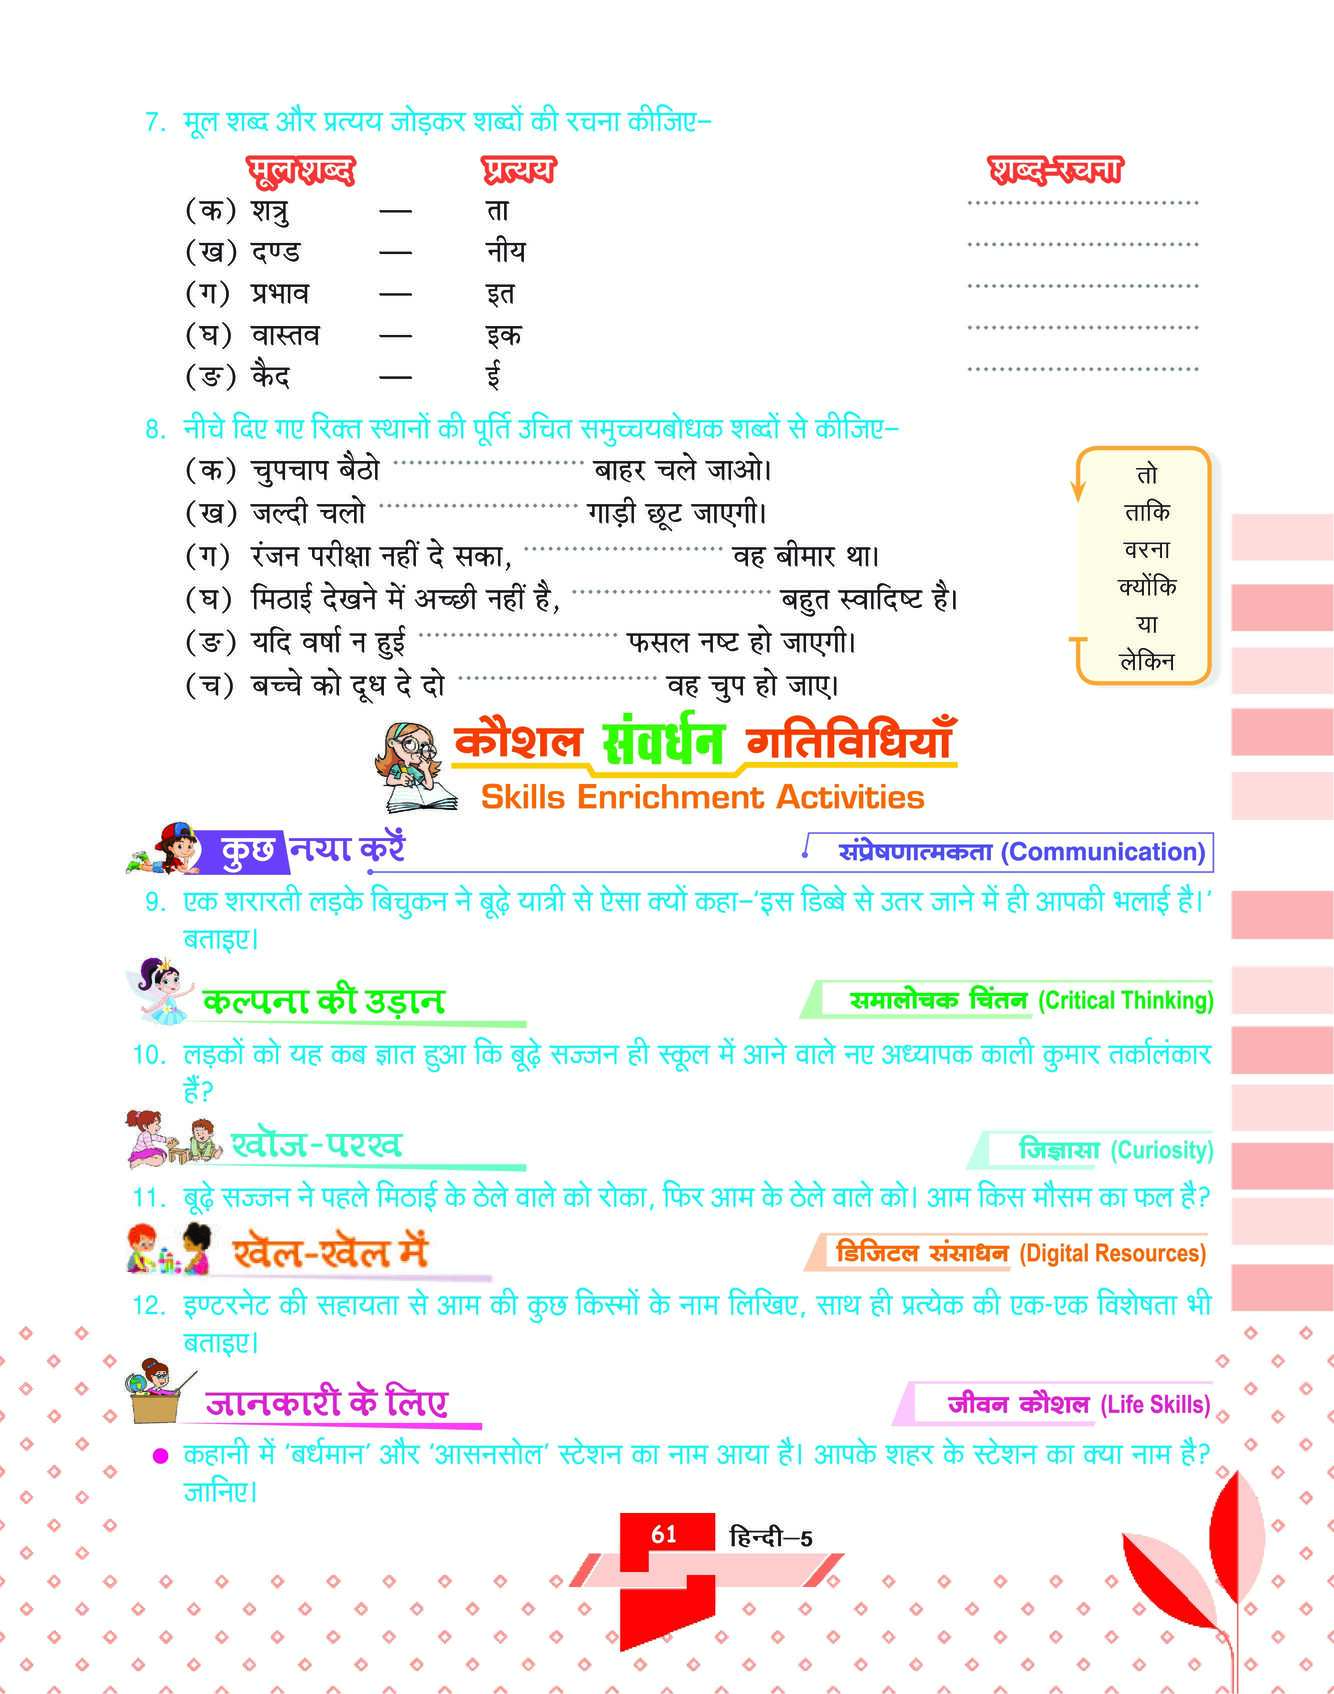 7. मूल शब्द और प्रत्यय जोड़कर शब्दों की रचना कीजिए–
मूल शब्द प्रत्यय शब्द-रचना
(क) शत्रु — ता ..............................
(ख) दण्ड — नीय ..............................
(ग) प्रभाव — इत ..............................
(घ) वास्तव — इक ..............................
(ङ) कैद — ई ..............................
8. नीचे दिए गए रिक्त स्थानों की पूर्ति उचित समुच्चयबोधक शब्दों से कीजिए–
(क) चुपचाप बैठो .............................. बाहर चले जाओ।
(ख) जल्दी चलो .............................. गाड़ी छूट जाएगी।
(ग) रंजन परीक्षा नहीं दे सका, .............................. वह बीमार था।
(घ) मिठाई देखने में अच्छी नहीं है, .............................. बहुत स्वादिष्ट है।
(ङ) यदि वर्षा न हुई .............................. फसल नष्ट हो जाएगी।
(च) बच्चे को दूध दे दो .............................. वह चुप हो जाए।
तो
ताकि
वरना
क्योंकि
या
लेकिन
कौशल संवर्धन गतिविधियाँ
Skills Enrichment Activities
कुछ नया करें संप्रेषणात्मकता (Communication)
9. एक शरारती लड़के बिचुकन ने बूढ़े यात्री से ऐसा क्यों कहा–‘इस डिब्बे से उतर जाने में ही आपकी भलाई है।’
बताइए।
कल्पना की उड़ान समालोचक चिंतन (Critical Thinking)
10. लड़कों को यह कब ज्ञात हुआ कि बूढ़े सज्जन ही स्कूल में आने वाले नए अध्यापक काली कुमार तर्कालंकार
हैं?
खोज-परख जिज्ञासा (Curiosity)
11. बूढ़े सज्जन ने पहले मिठाई के ठेले वाले को रोका, फिर आम के ठेले वाले को। आम किस मौसम का फल है?
खेल-खेल में डिजिटल संसाधन (Digital Resources)
12. इण्टरनेट की सहायता से आम की कुछ किस्मों के नाम लिखिए, साथ ही प्रत्येक की एक-एक विशेषता भी
बताइए।
जानकारी के लिए जीवन कौशल (Life Skills)
● कहानी में ‘बर्धमान’ और ‘आसनसोल’ स्टेशन का नाम आया है। आपके शहर के स्टेशन का क्या नाम है?
जानिए।
61 हिन्दी–5